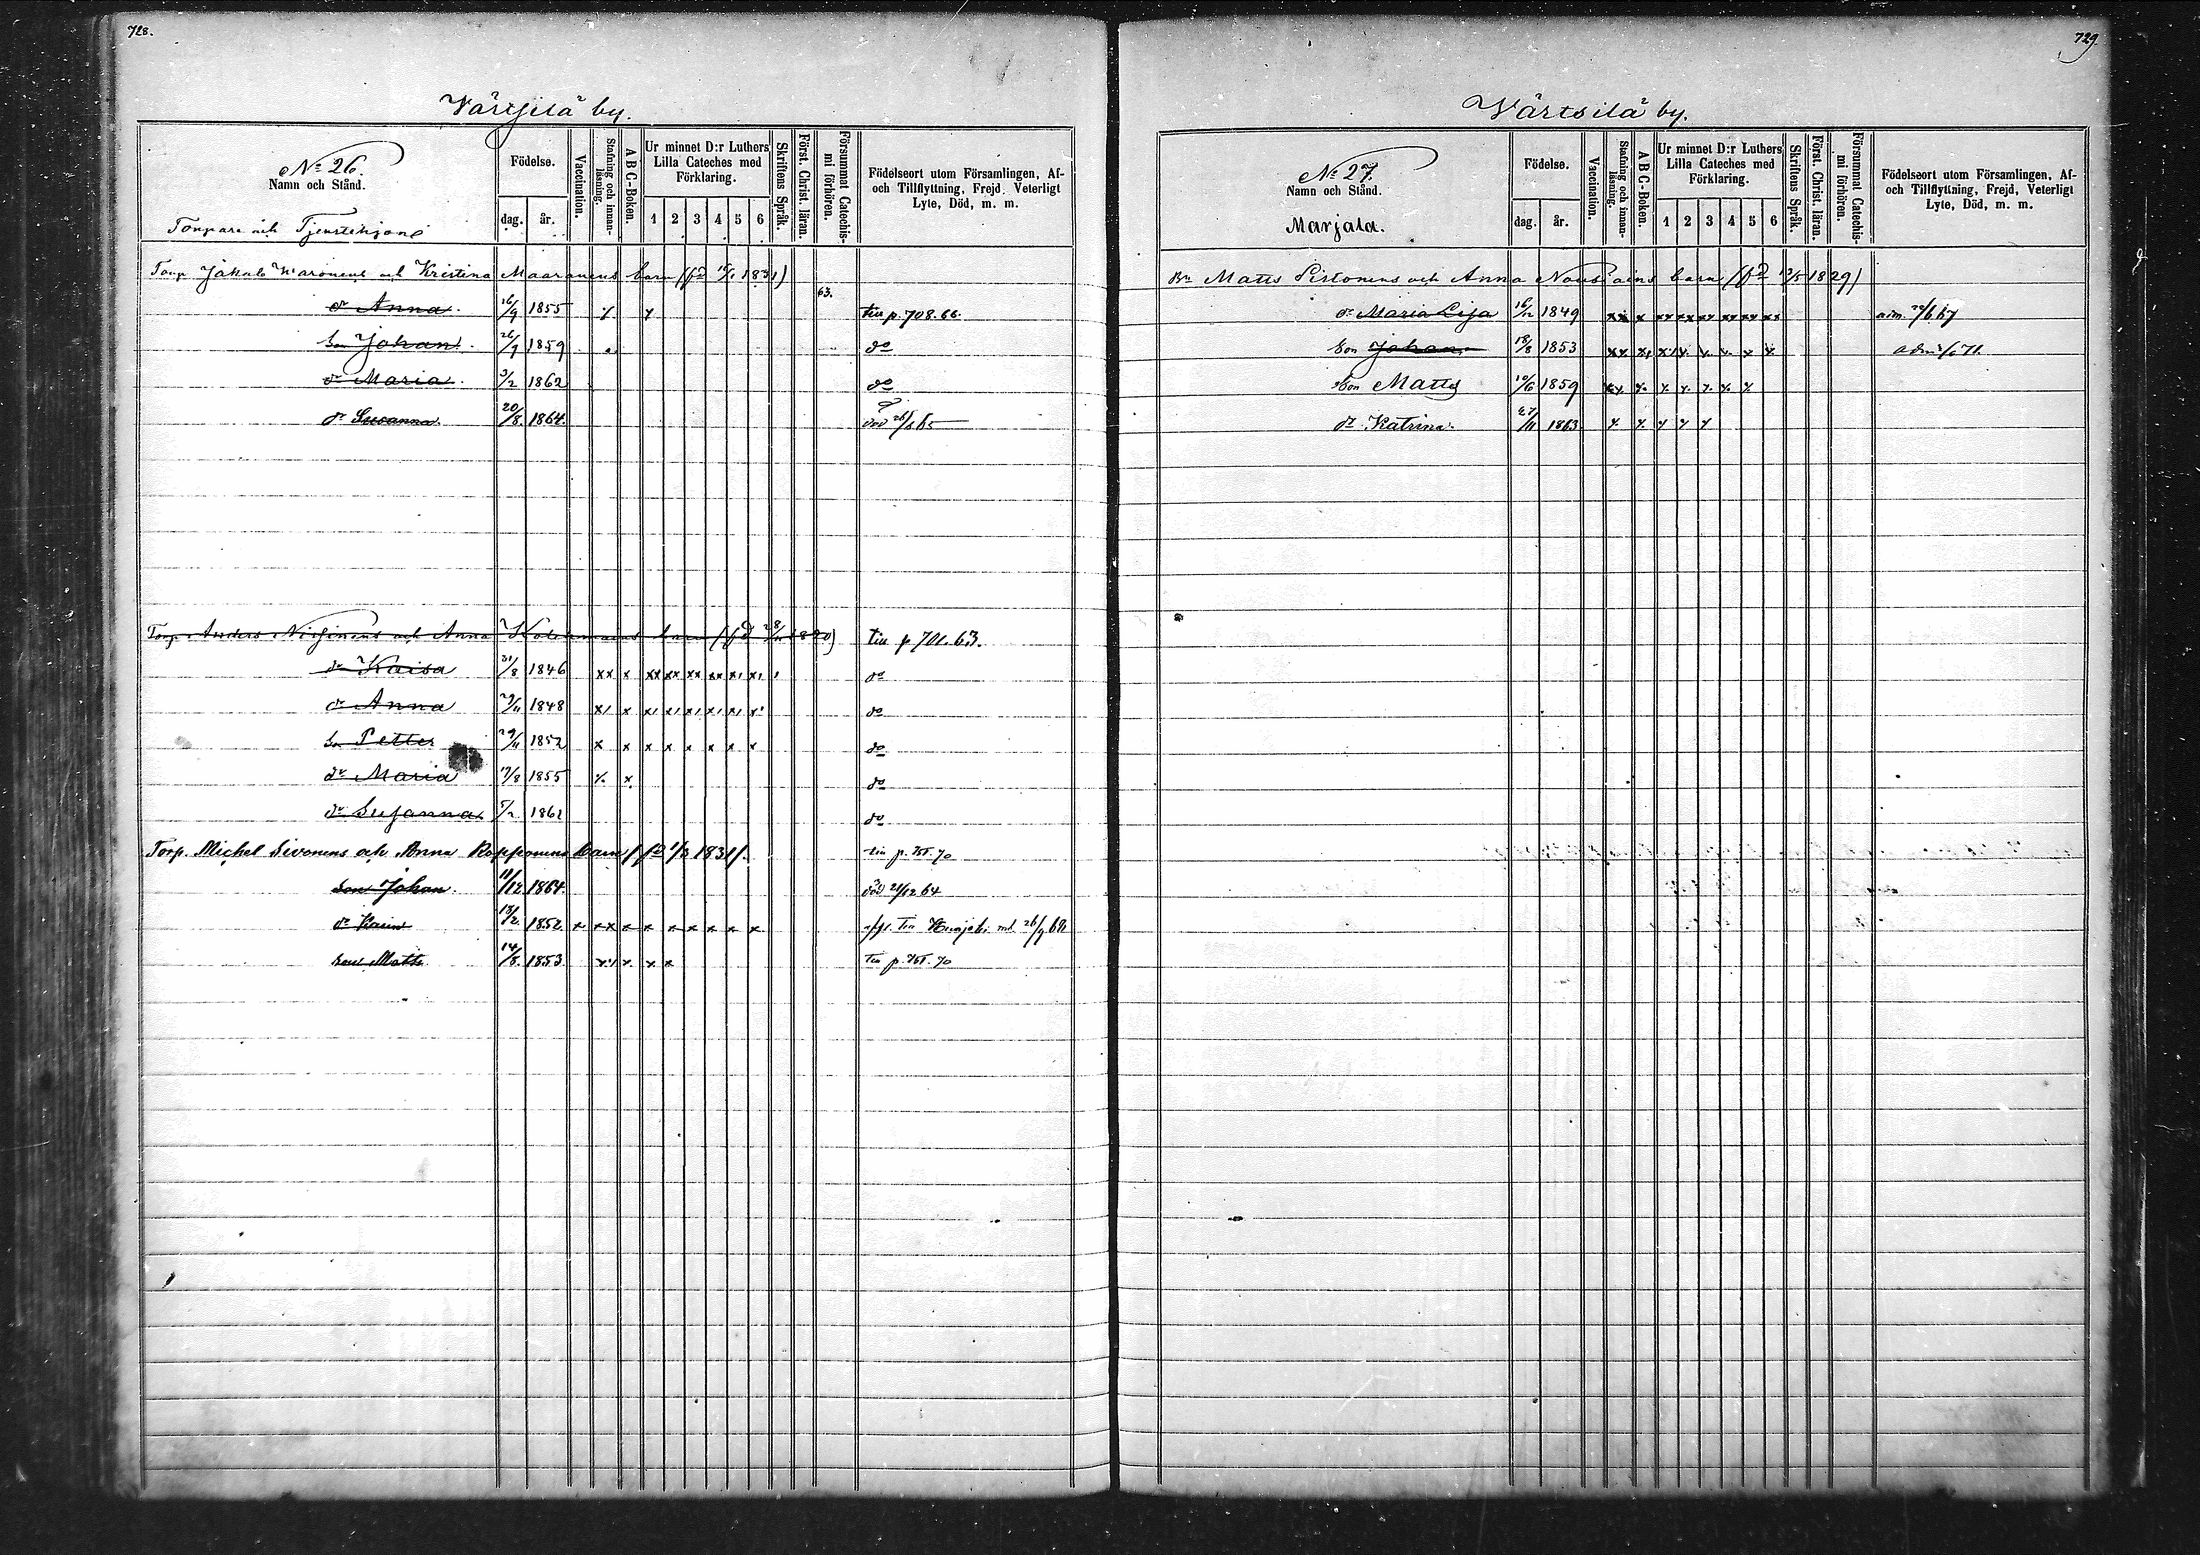 728.
Värtsilä by.
No 26.
Namn och Stånd.
Torpare och Tjenstehjon
Födelse.
dag. år.
Vaccination.
Stafning och innanläsning.
A B C-Boken.
Ur minnet D:r Luthers Lilla Cateches med Förklaring.
1 2 3 4 5 6
Skriftens Språk.
Först. Christ. läran.
Försummat Catechismi förhören.
Födelseort utom Församlingen, Af- och Tillflyttning, Frejd, Veterligt Lyte, Död, m. m.
Torp. Jakob och Kristina Maaranens barn (fd 1831)
63.
dr Anna. 16/9 1855 till p. 708.66.
Son Johan. 26/9 1859 do
dr Maria. 3/2 1862 do
dr Susanna. 20/8. 1864. död
Torp. Anders och Anna barn till p 701.63.
dr Kaisa 31/8 1846 xx x xx xx xx xx x1 x1 1 do
dr Anna 29/11 1848 x1 x x1 x1 x1 x1 x1 x1 do
Son Petter 29/11 1852 x x x x x x x x do
dr Maria 17/8 1855 x do
dr Susanna 5/2 1862 do
Torp. Michel Sivonens och Anna Ropponens barn (fd 1/3 1831). till p. 70
Son Johan. 11/12 1864. död 21/12 64
dr Karin 13/2 1852 x xx x x x x x x x till
Son Matts 14/5. 1853. x x x till p. 70
729.
Värtsilä by.
No 27.
Namn och Stånd.
Marjala.
Födelse.
dag. år.
Vaccination.
Stafning och innanläsning.
A B C-Boken.
Ur minnet D:r Luthers Lilla Cateches med Förklaring.
1 2 3 4 5 6
Skriftens Språk.
Först. Christ. läran.
Försummat Catechismi förhören.
Födelseort utom Församlingen, Af- och Tillflyttning, Frejd, Veterligt Lyte, Död, m. m.
Bn Matts och Anna Nousiains barn (fd 13/5 1829)
dr Maria Lisa 16/12 1849 xx x xx xx xx xx xx xx adm.
Son Johan 18/8 1853 adm 71.
Son Matts 10/6 1859
dr Katrina. 27/11 1863